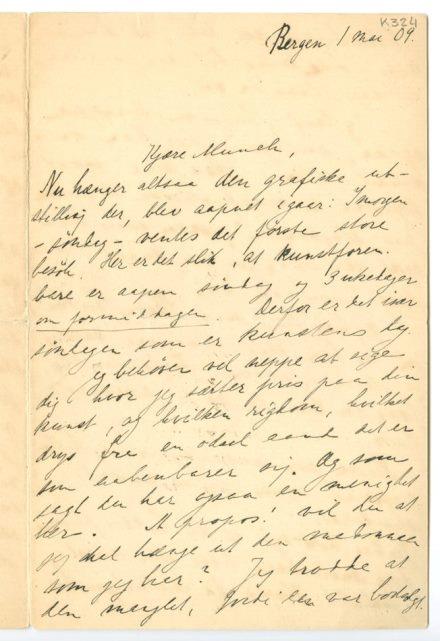 K324
Bergen 1 mai 09.
Kjære Munch,
Nu hænger altsaa den grafiske ut-
stilling der, blev aapnet igaar: Imorgen
- söndag - ventes det første store
besök. Her er det slik, at kunstforen.
bare er aapen söndag og 3 ukedager
om formiddagen. Derfor er det især
söndagen som er kunstens dag.
Jeg behøver vel neppe at sige
dig hvor jeg sætter pris paa din
kunst, og hvilken rigdom, hvilket
dryp fra en ödsel aand det er
som aabenbarer sig. Og som
sagt du har ogsaa en menighet
her. A propos! vil du at
jeg skal hænge ut den madonnaen
som jeg har? Jeg trodde at
den manglet, fordi den var